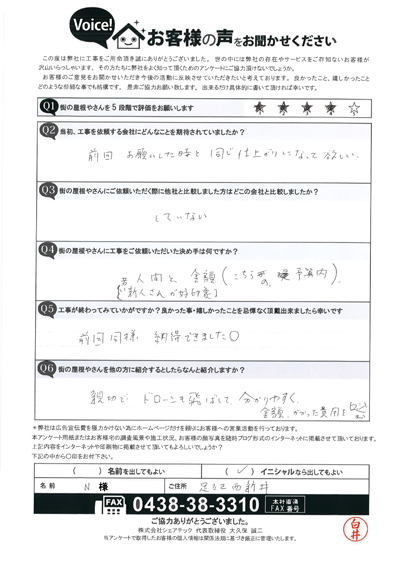 Voice!
お客様の声をお聞かせください
この度は弊社に工事をご用命頂き誠にありがとうございました。世の中には弊社の存在やサービスをご存知ないお客様が
沢山いらっしゃいます。その方たちに弊社をよく知って頂くためのアンケートにご協力頂けないでしょうか。
お客様のご意見をお聞かせいただき今後の活動に反映させていただきたいと考えております。良かったこと、嬉しかったこと
どのような些細な事でも結構です。是非ご協力お願い致します。出来るだけ具体的に書いて頂ければ幸いです。
Q1 街の屋根やさんを5段階で評価をお願いします
★ ★ ★ ★ ☆
Q2 当初、工事を依頼する会社にどんなことを期待されていましたか?
前回お願いした時と同じ仕上がりになって欲しい。
Q3 街の屋根やさんにご依頼いただく際に他社と比較しました方はどこの会社と比較しましたか?
していない
Q4 街の屋根やさんに工事をご依頼いただいた決め手は何ですか?
人間と金額(こちらの 予算内)
新人さんが好印象
Q5 工事が終わってみていかがですか?良かった事・嬉しかったことを忌憚なく頂戴出来ましたら幸いです
前回同様 納得できました○
Q6 街の屋根やさんを他の方に紹介するとしたらなんと紹介しますか?
親切で ドローンも飛ばして、分かりやすく
金額、かかった費用を
*弊社は広告宣伝費を極力かけない為にホームページだけを頼りにお客様への営業活動を行っております。
本アンケート用紙またはお客様宅の調査風景や施工状況、お客様の顔写真を随時ブログ形式のインターネットに掲載させて頂いております。
上記内容をインターネットや印刷物に掲載させて頂いてもよろしいでしょうか?
下記の中から○印をお付け下さい。
( )名前を出してもよい (✓)イニシャルなら出してもよい
名前 N 様 ご住所 足立区西新井
FAX 0438-38-3310 本社直通 FAX番号
ご協力ありがとうございました。
株式会社シェアテック 代表取締役 大久保 誠二
当アンケートで取得したお客様の個人情報は関係法規に基づき厳正に管理いたします。
白井